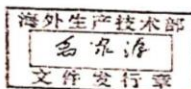 海外生产技术部
文件发行章